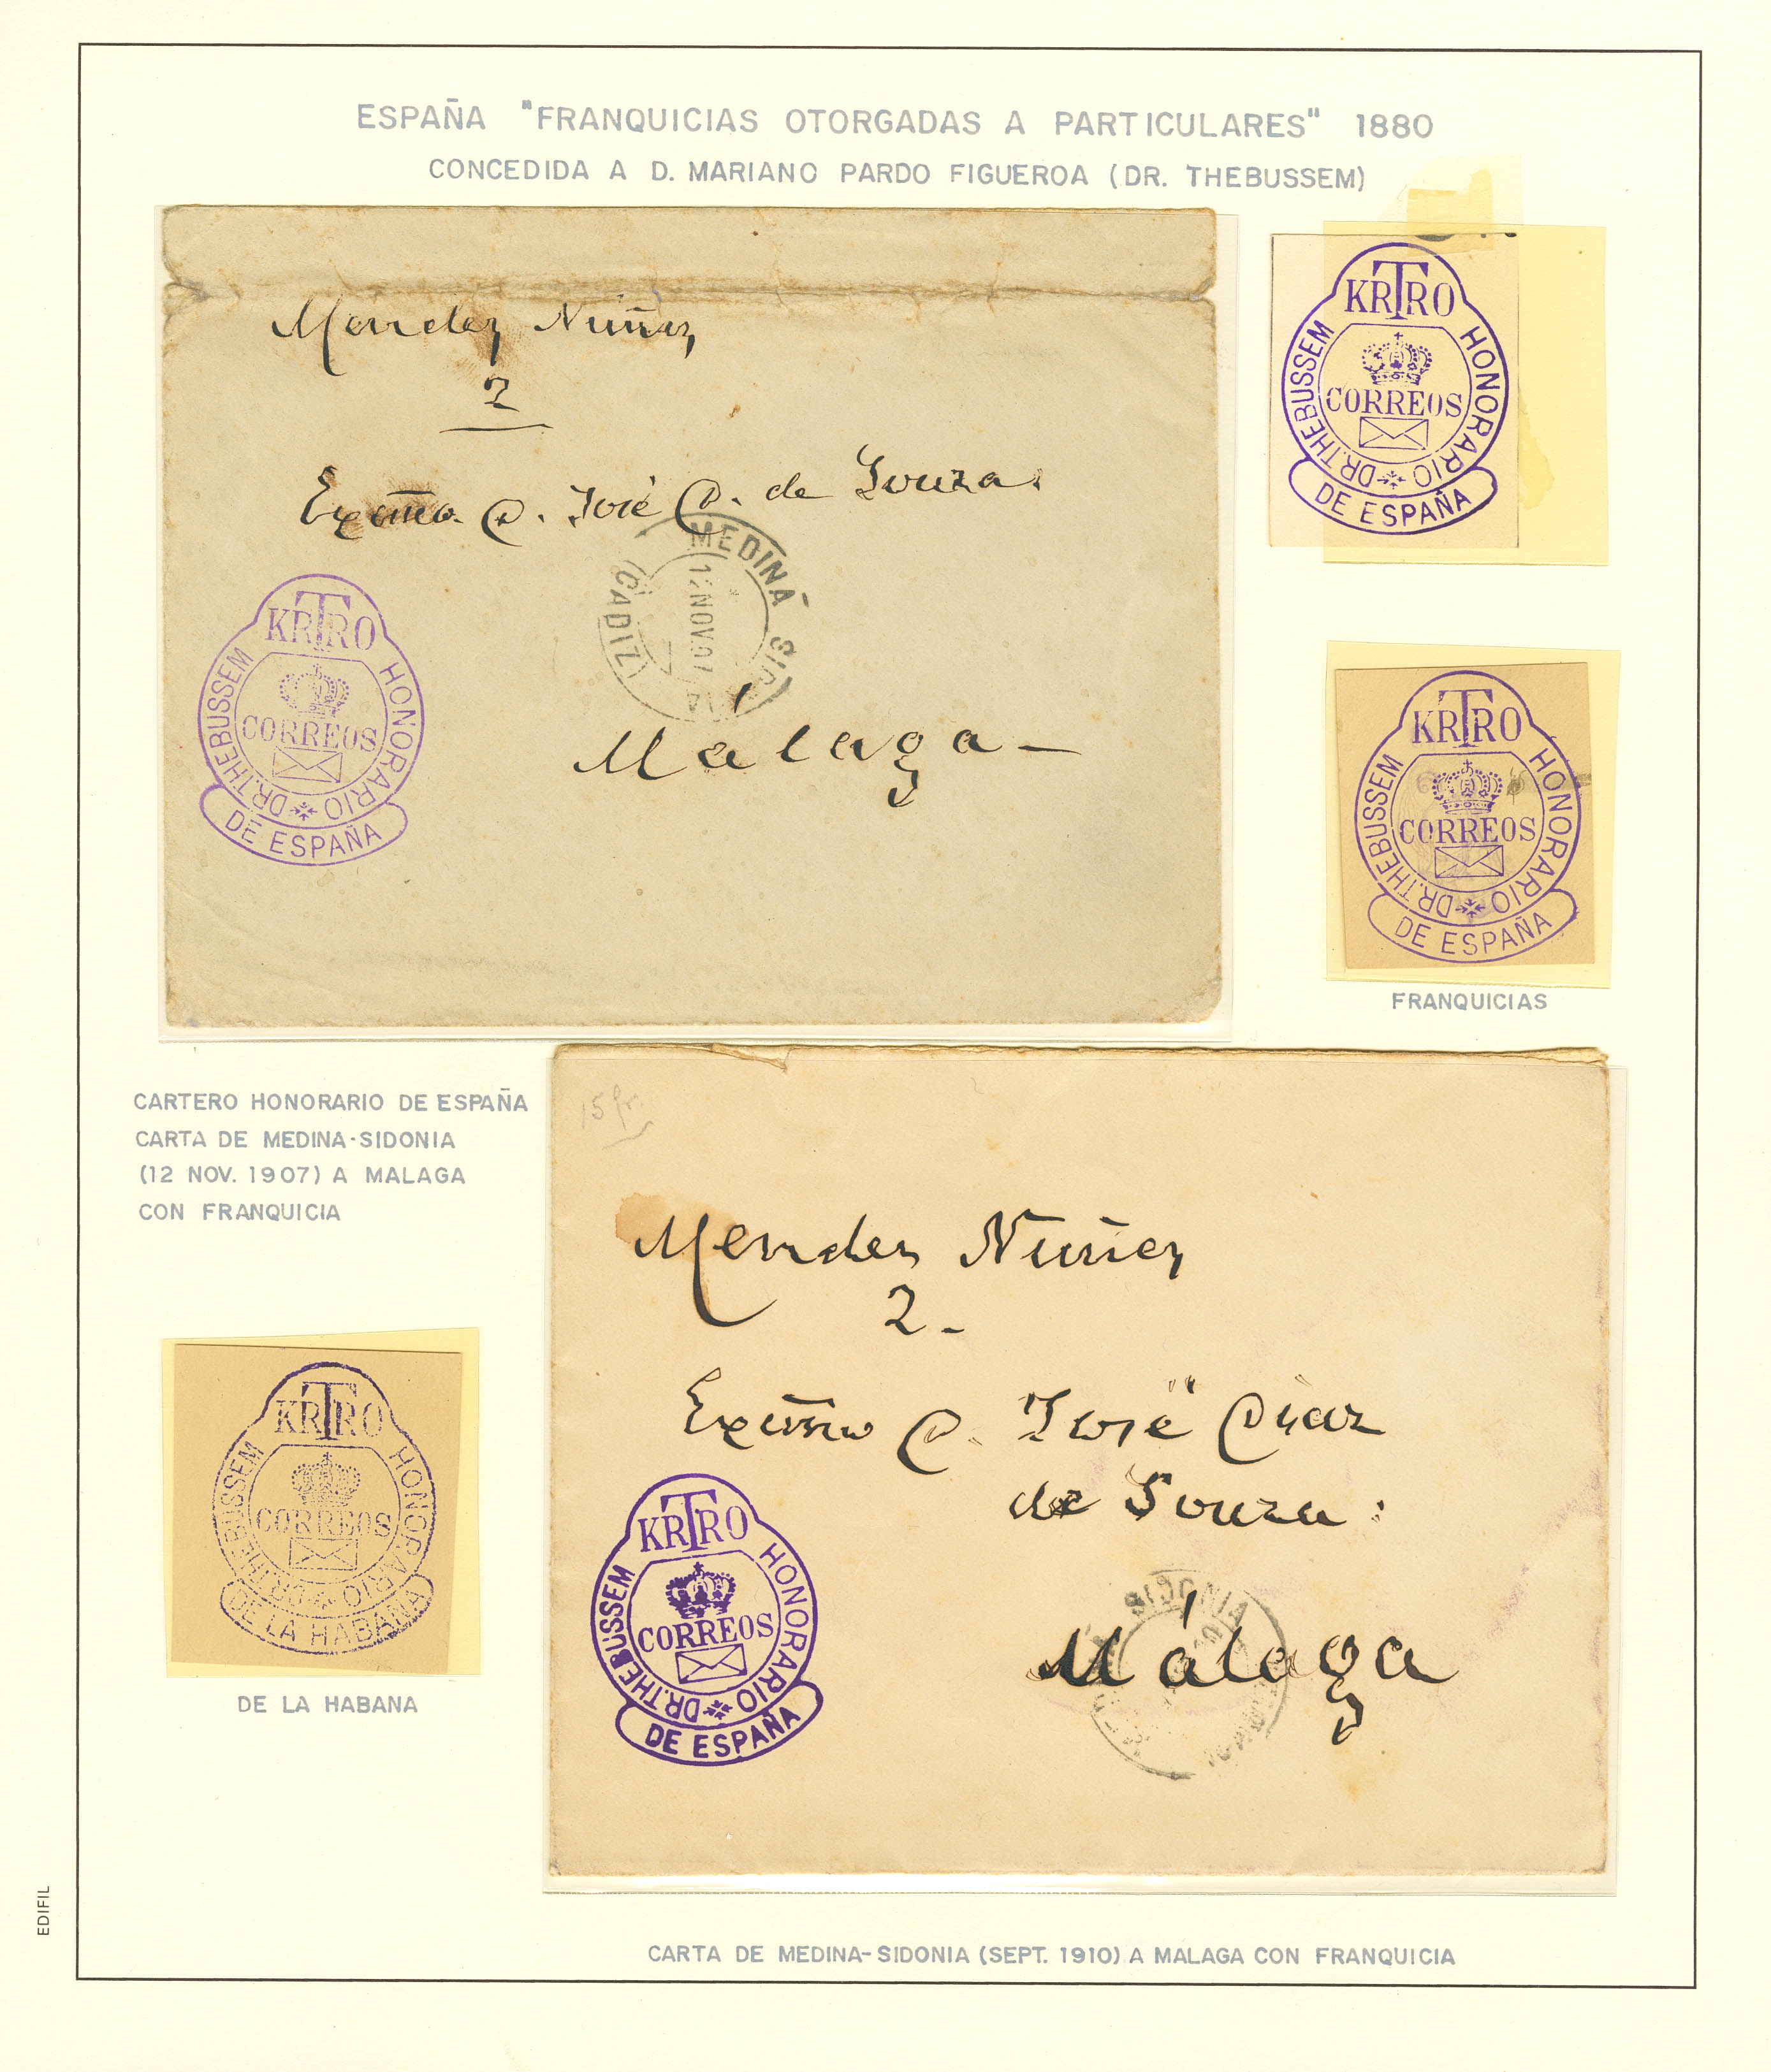 ESPAÑA "FRANQUICIAS OTORGADAS A PARTICULARES" 1880
CONCEDIDA A D. MARIANO PARDO FIGUEROA (DR. THEBUSSEM)
Mendez Nuñez
2
Excmo. D. José D. de Souza.
MEDINA SIDONIA
(CADIZ)
12 NOV. 07
Málaga
KRTRO
HONORARIO
DR. THEBUSSEM
CORREOS
DE ESPAÑA
KRTRO
HONORARIO
DR. THEBUSSEM
CORREOS
DE ESPAÑA
KRTRO
HONORARIO
DR. THEBUSSEM
CORREOS
DE ESPAÑA
FRANQUICIAS
CARTERO HONORARIO DE ESPAÑA
CARTA DE MEDINA-SIDONIA
(12 NOV. 1907) A MALAGA
CON FRANQUICIA
15 fr.
Mendez Nuñez
2.
Excmo D. José Diaz
de Souza:
Málaga
SIDONIA
KRTRO
HONORARIO
DR. THEBUSSEM
CORREOS
DE ESPAÑA
KRTRO
HONORARIO
DR. THEBUSSEM
CORREOS
DE LA HABANA
DE LA HABANA
CARTA DE MEDINA-SIDONIA (SEPT. 1910) A MALAGA CON FRANQUICIA
EDIFIL